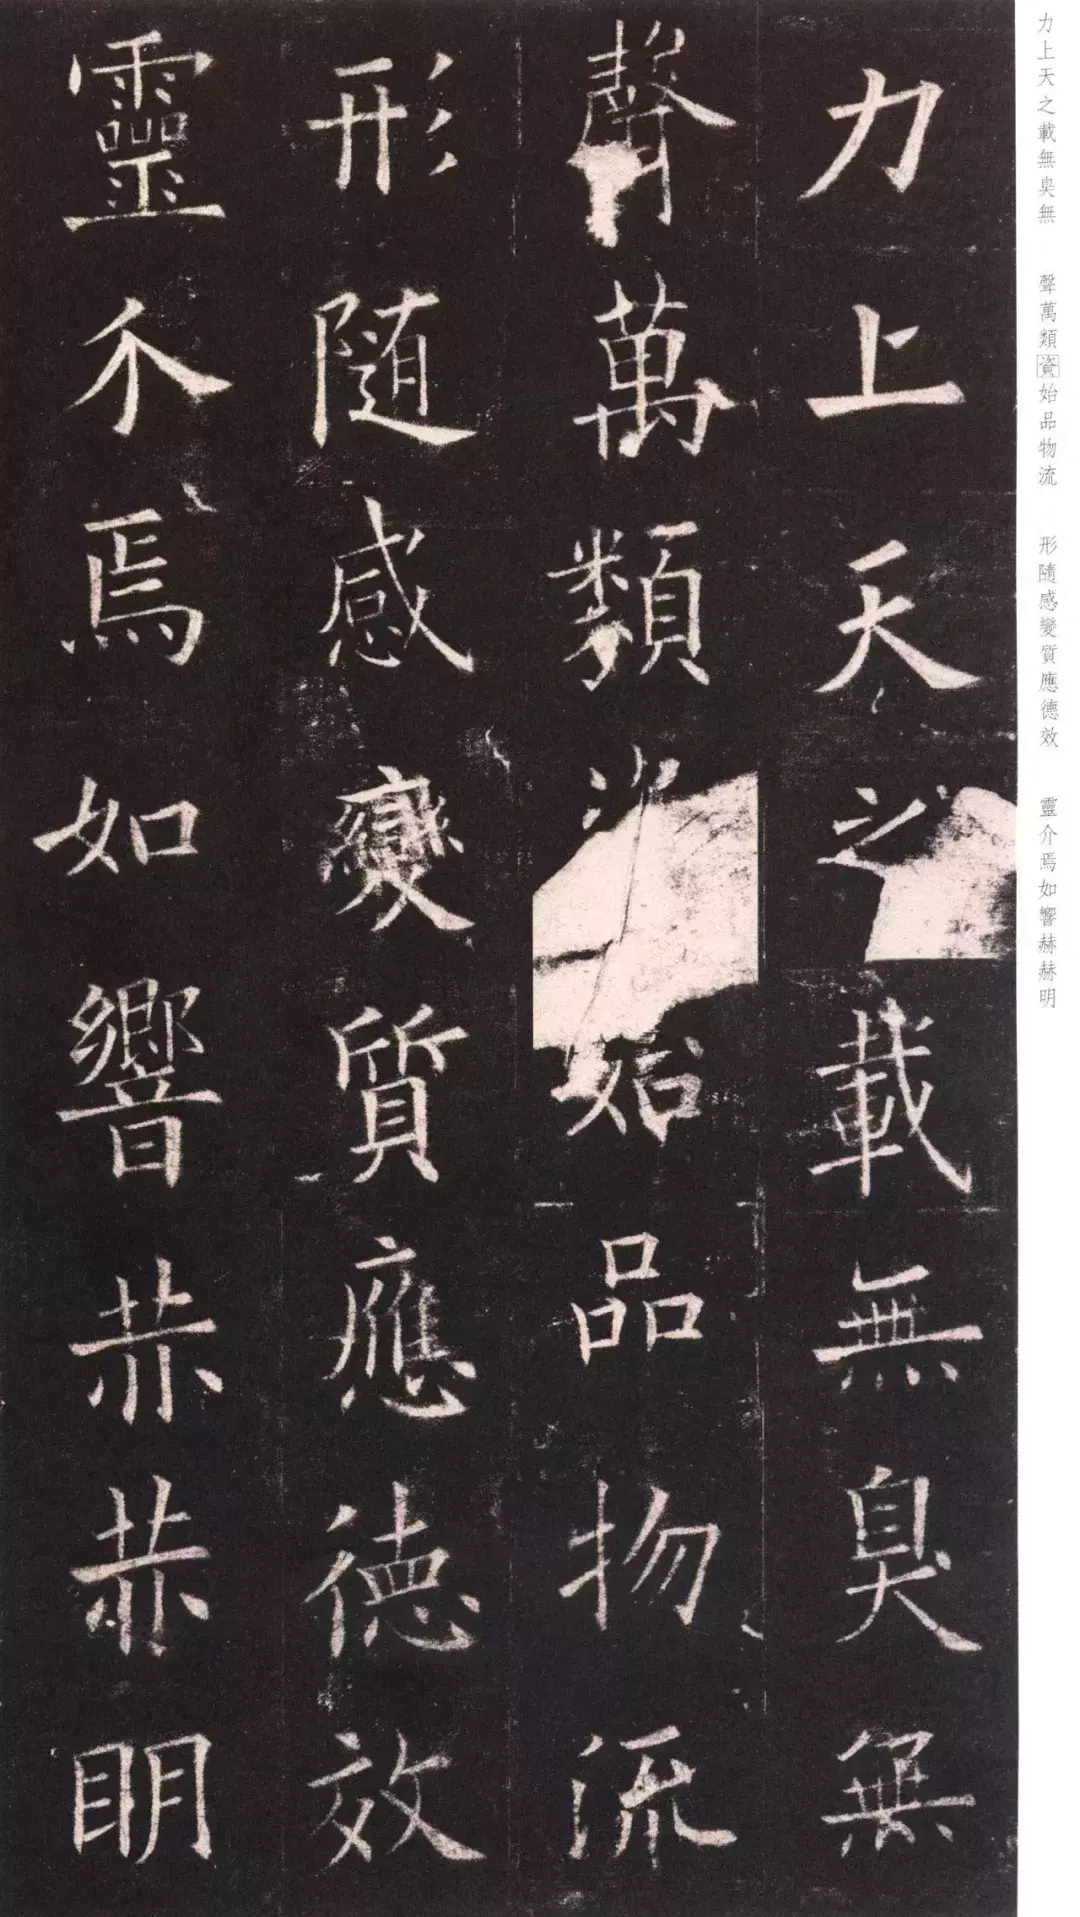 力上天之載無臭無 聲萬類資始品物流 形隨感變質應德效 靈介焉如響赫赫明
力上天之載無臭無
聲萬類始品物流
形隨感變質應德效
靈介焉如響赫赫明